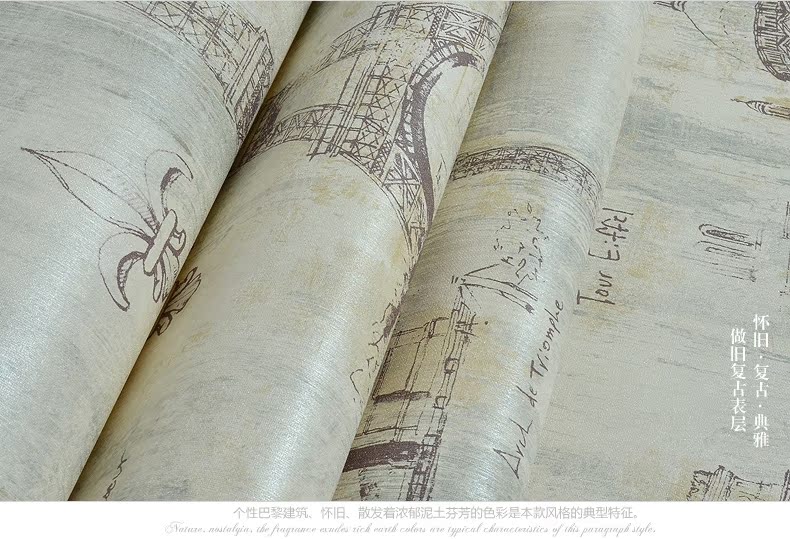 Tour Eiffel
Arch de Triomphe
怀旧·复古·典雅
做旧复古表层
个性巴黎建筑、怀旧、散发着浓郁泥土芬芳的色彩是本款风格的典型特征。
Nature, nostalgia, the fragrance exudes rich earth colors are typical characteristics of this paragraph style.